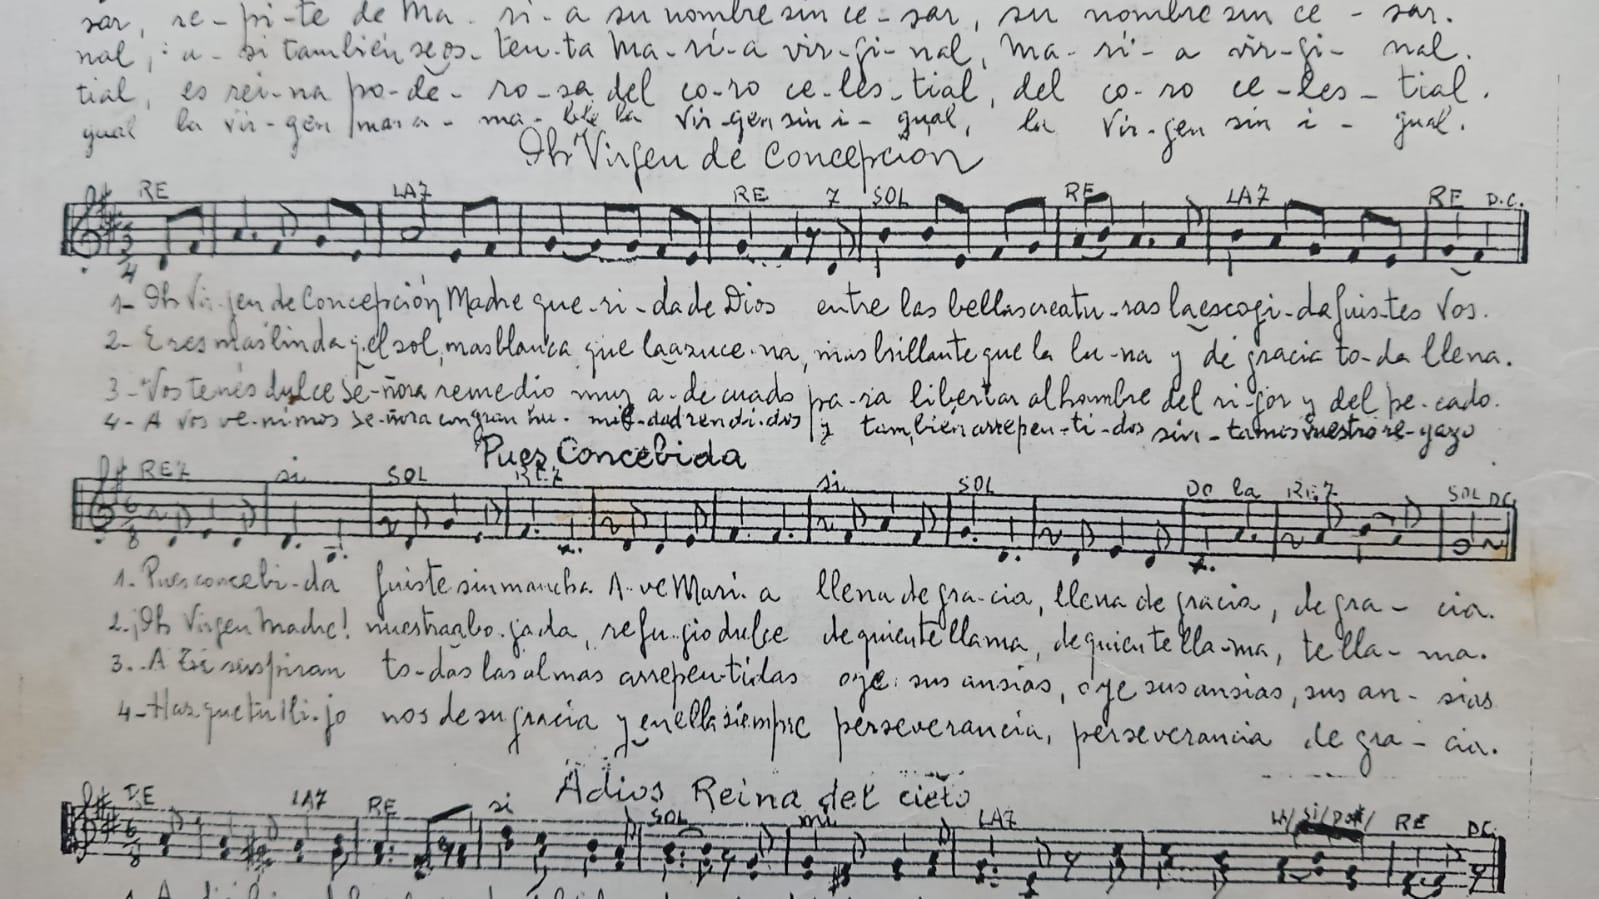 sar, re-pi-te de Ma-ri-a su nombre sin ce-sar, su nombre sin ce-sar.
nal, a-si también se os-ten-ta Ma-rí-a vir-gi-nal, Ma-rí-a vir-gi-nal.
tial, es rei-na po-de-ro-sa del co-ro ce-les-tial, del co-ro ce-les-tial.
gual la vir-gen la Vir-gen sin i-gual, la Vir-gen sin i-gual.
Oh Virgen de Concepcion
RE LA7 RE 7 SOL RE LA7 RE D.C.
3/4
1- Oh Vir-jen de Concepción Madre que-ri-da de Dios entre las bellas creatu-ras la escogi-da fuis-tes Vos.
2- Eres más linda q. el sol, mas blanca que la azuce-na, mas brillante que la lu-na y de gracia to-da llena.
3- Vos tenés dulce Se-ñora remedio muy a-de cuado pa-ra libertar al hombre del ri-gor y del pe-cado.
4- A Vos ve-nimos Se-ñora con gran hu-mil-dad rendi-dos y también arrepen-ti-dos vuestro re-gazo
Pues Concebida
RE7 si SOL RE7 si SOL DO la RE7 SOL DC.
6/8
1. Pues concebi-da fuiste sin mancha A-ve Marí-a llena de gra-cia, llena de gracia, de gra-cia.
2. ¡Oh Virgen Madre! nuestra abo-gada, refu-gio dulce de quien te llama, de quien te lla-ma, te lla-ma.
3. A Ti suspiran to-das las almas arrepen-tidas oye sus ansias, oye sus ansias, sus an-sias
4- Haz que tu Hi-jo nos de su gracia y en ella siempre perseverancia, perseverancia de gra-cia.
Adios Reina del cielo
RE LA7 RE si SOL mi LA7 RE DC.
6/8